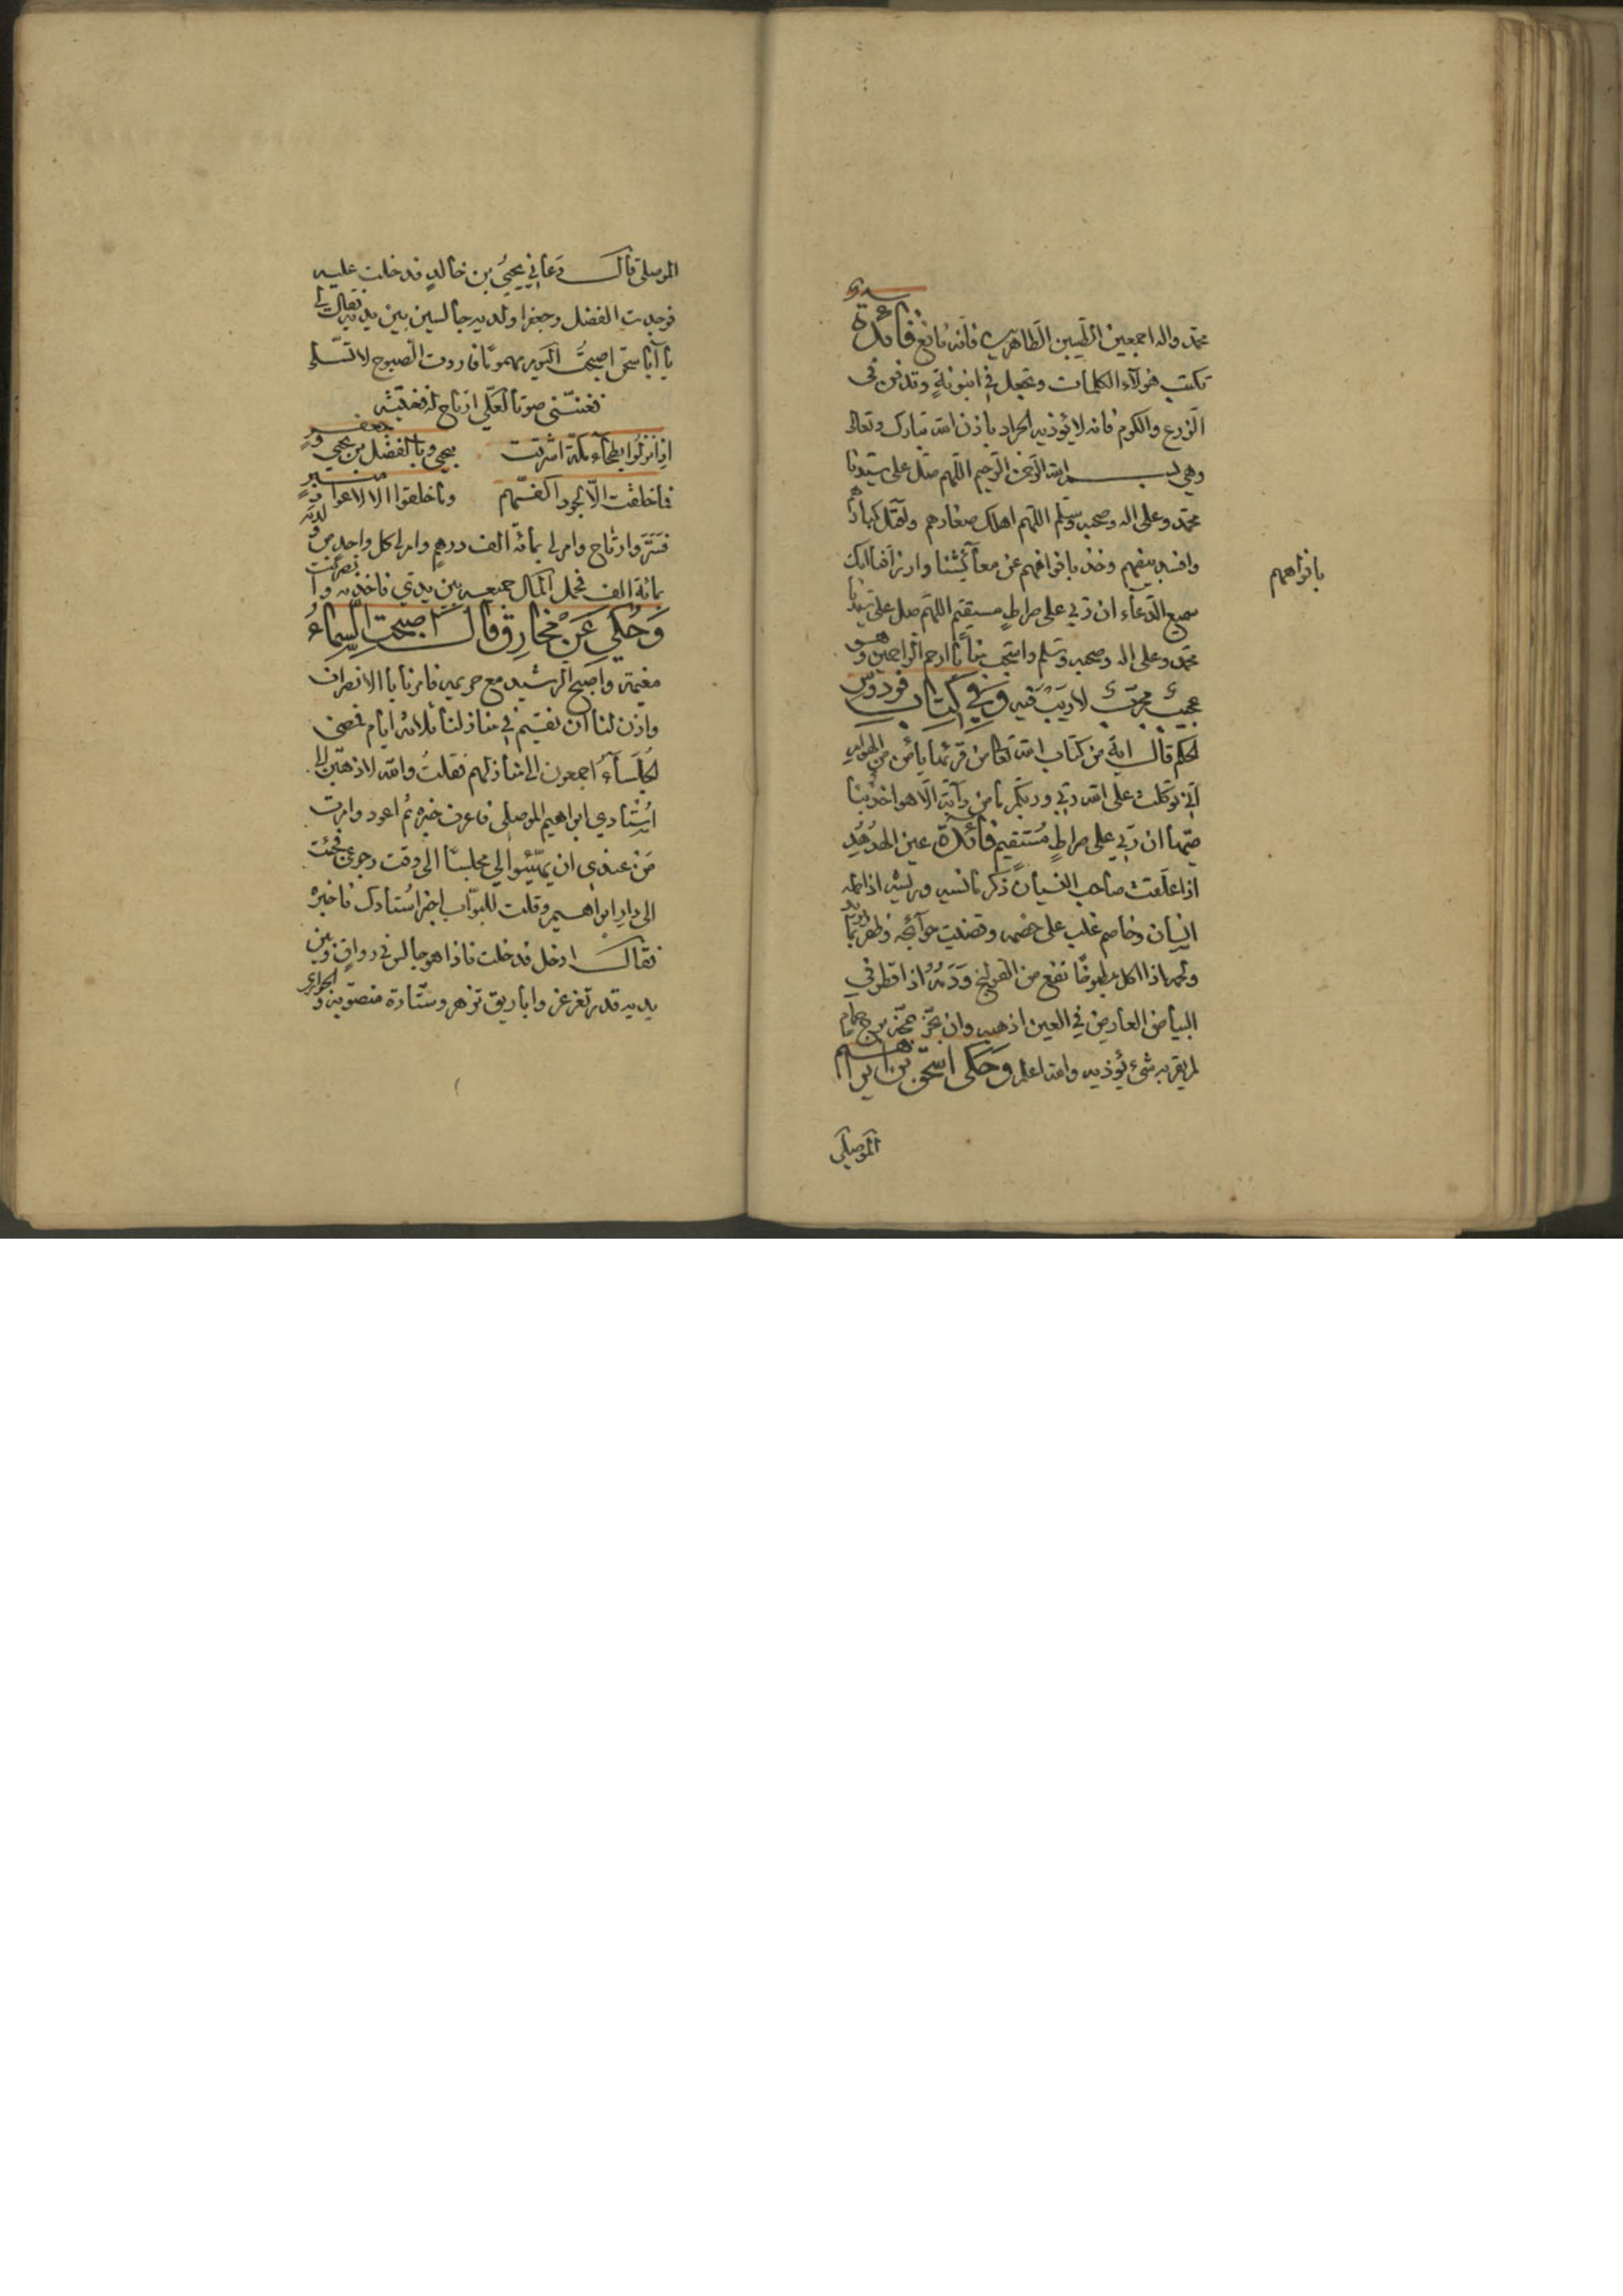 محمد واله اجمعين الطيبين الطاهرين فانه نافع فائدة
تكتب هولاء الكلمات وتجعل في انبوبة وتدفن في
الزرع والكروم فانه لا يؤذيه الجراد باذن الله تبارك وتعالى
وهي بسم الله الرحمن الرحيم اللهم صل على سيدنا
محمد وعلى اله وصحبه وسلم اللهم اهلك صغارهم واقتل كبارهم
وافسد بيضهم وخذ بافواههم عن معائشنا وارزاقنا انك
بافواههم
سميع الدعاء ان ربي على صراط مستقيم اللهم صل على سيدنا
محمد وعلى اله وصحبه وسلم واستجب منا يا ارحم الراحمين وهو
عجيب مجرب لا ريب فيه وفي كتاب فردوس
الحكم قال اية من كتاب الله تعالى من قرئها يأمن من الهوام
اني توكلت على الله ربي وربكم ما من دآبة الا هو اخذ بنا
صيتها ان ربي على صراط مستقيم فائدة عين الهدهد
اذا علقت صاحب النسيان ذكر ما نسيه وريشه اذا حمله
انسان وخاصم غلب على خصمه وقضيت حوآئجه وظفر بما يريد
ولحمه اذا اكل مطبوخًا نفع من القولنج ودمه اذا قطر في
البياض العارض في العين اذهبه وان بخر بمخه برج حمام
لم يقربه شيء يؤذيه والله اعلم وحكى اسحق بن ابراهيم
الموصلي
الموصلي قال دعاني يحيى بن خالد فدخلت عليه
فوجدت الفضل وجعفرا ولديه جالسين بين يديه فقال لي
يا ابا اسحق اصبحت اليوم مهمومًا فاردت الصبوح لاتسلى
فغنني صوتا لعلي ارتاح له فغنيته
اذا نزلوا بطحآء مكة اشرقت بيحيى وبالفضل بن يحيى وجعفر
فما خلقت الا لجود اكفهم وما خلقوا الا لاعواد منبر
فسر وارتاح وامر لي بمائة الف درهم وامر لي كل واحد من ولديه
بمائة الف فحمل المال جميعه بين يدي فاخذته وانصرفت
وحكي عن مخارق قال اصبحت السماء
مغيمة واصبح الرشيد مع حريمه فامرنا بالانصراف
واذن لنا ان نقيم في منازلنا ثلاثة ايام فمضى
الجلسآء اجمعون الى منازلهم فقلت والله لاذهبن الى
استادي ابراهيم الموصلي فاعرف خبره ثم اعود وامرت
من عندي ان يهيئوا لي مجلسًا الى وقت رجوعي فجئت
الى دار ابراهيم وقلت للبواب اخبر استادك فاخبره
فقال ادخل فدخلت فاذا هو جالس في رواق وبين
يديه قدر تغرغر واباريق تزهر وستارة منصوبة والجواري